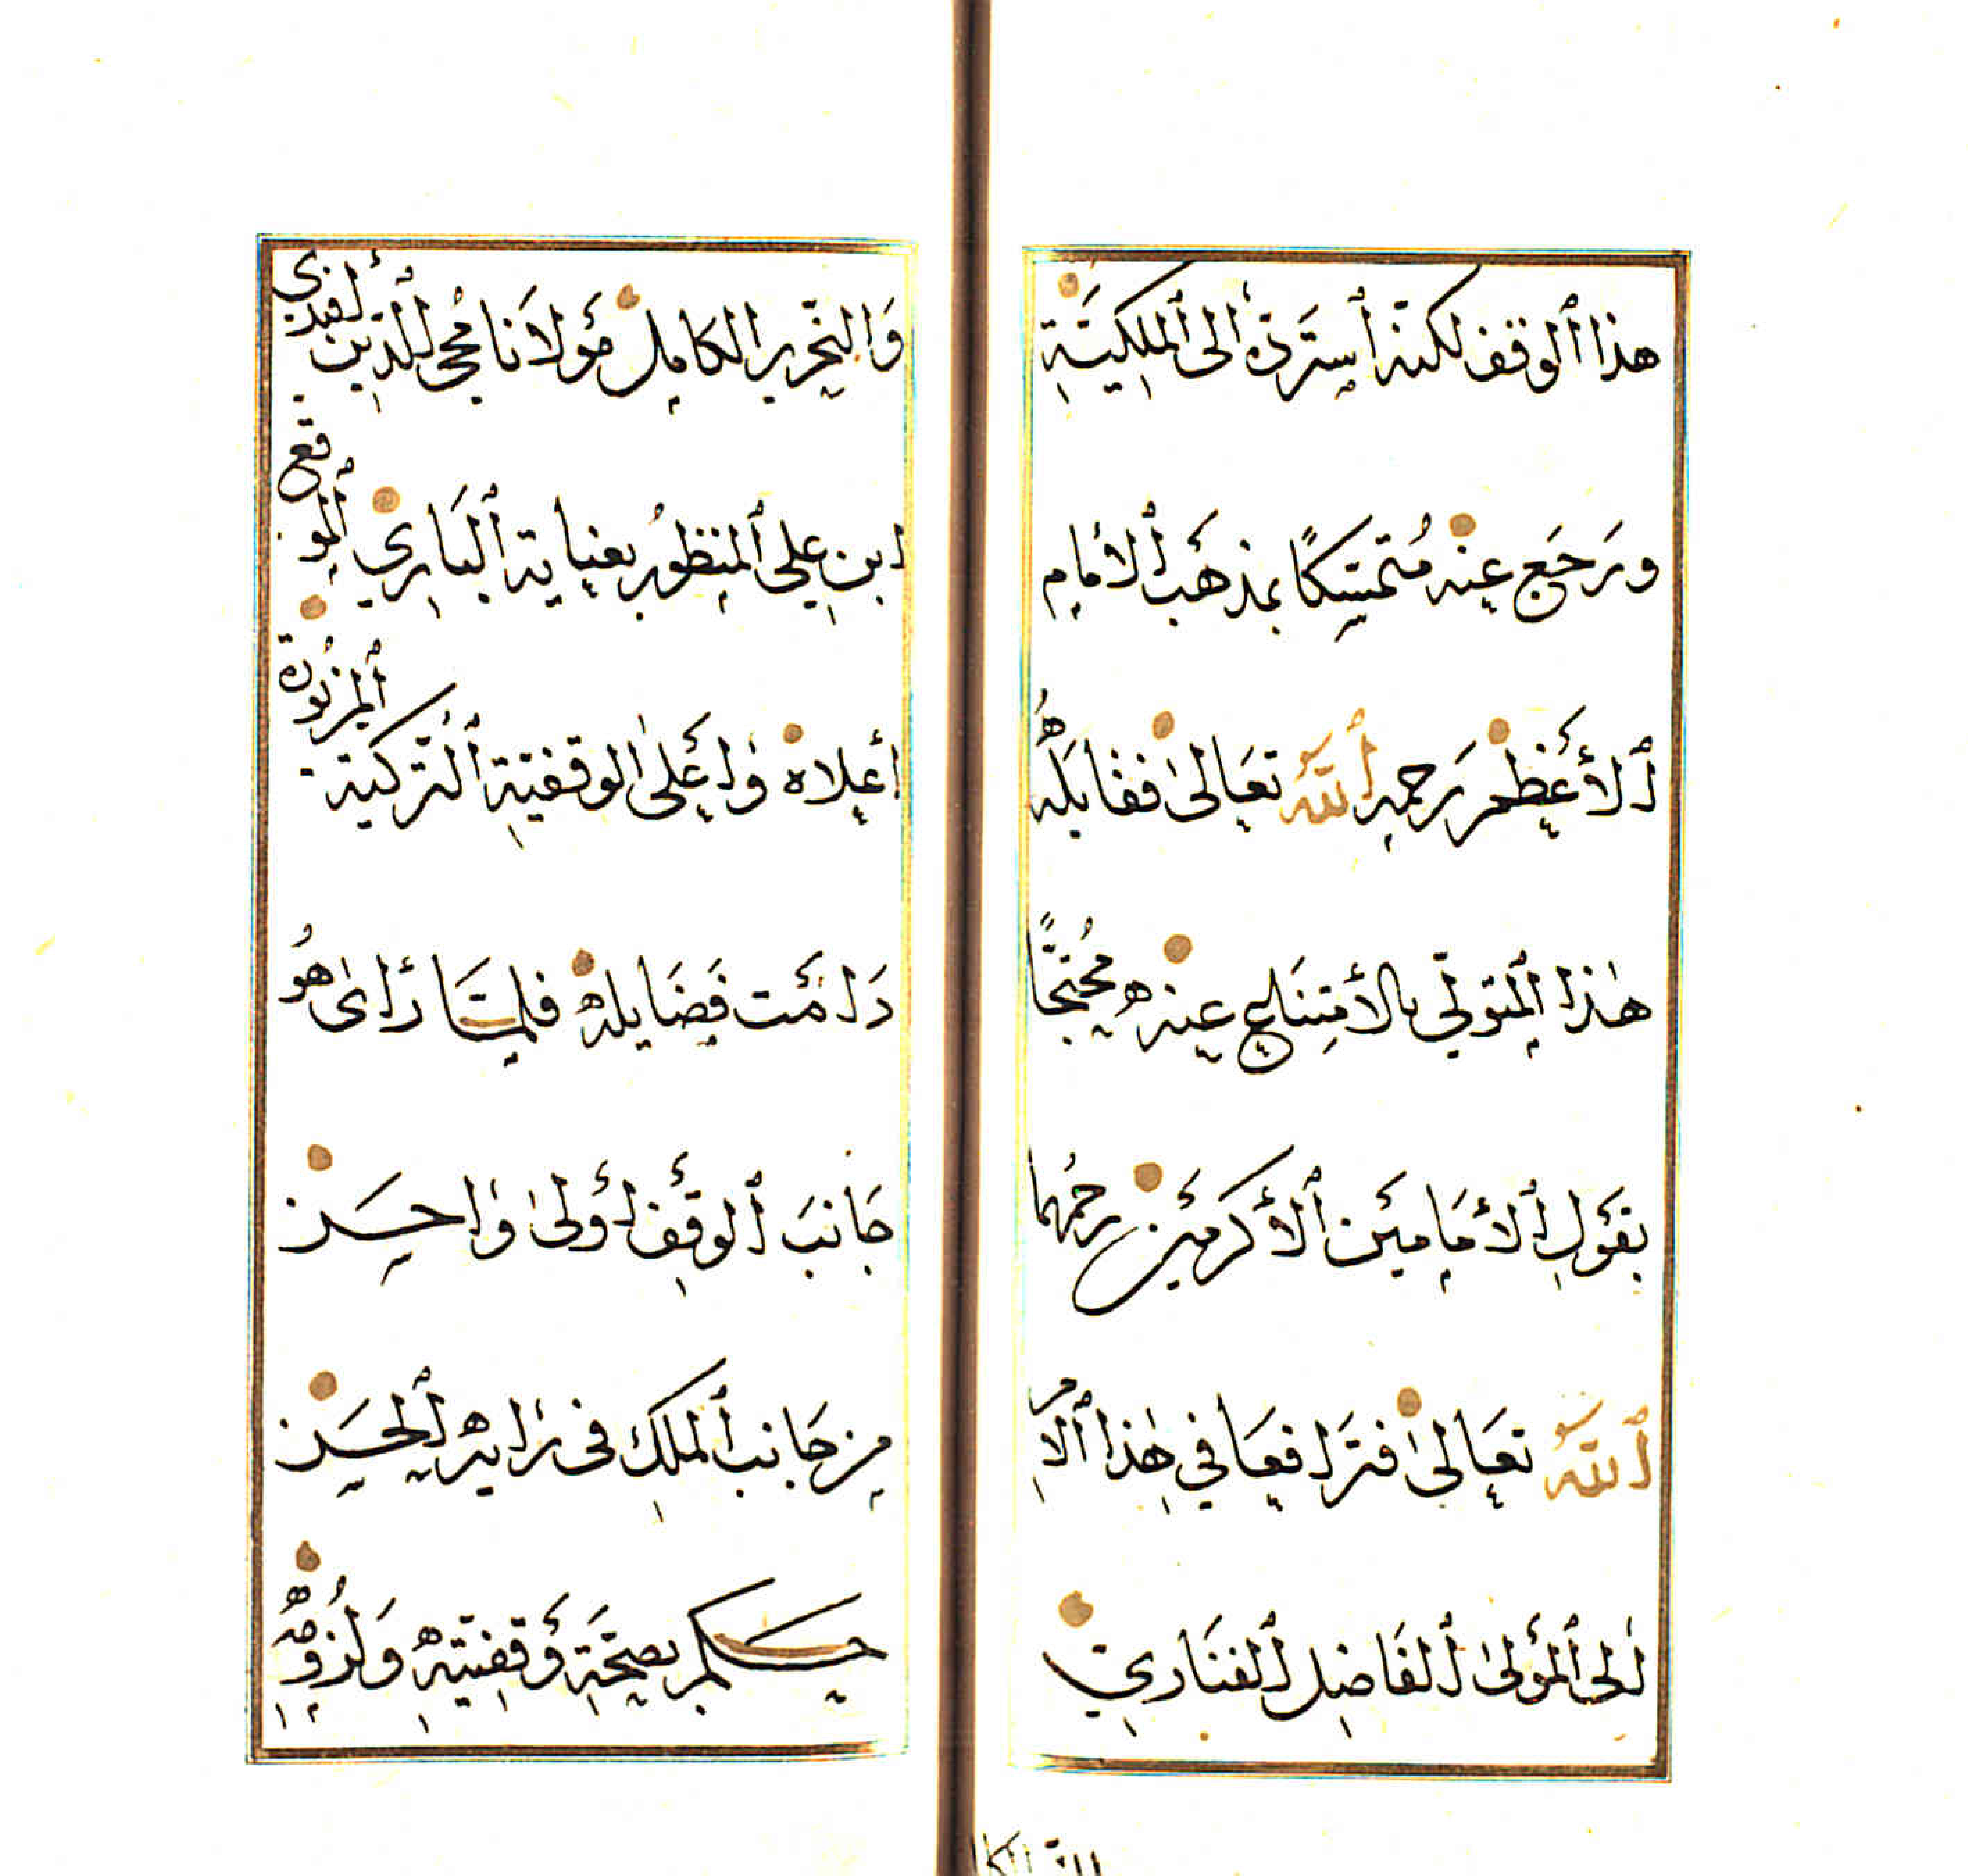 هذا الوقف لكنه استرده الى الملكية
ورجع عنه متمسكا بمذهب الامام
الأعظم رحمه الله تعالى فقابله
هذا المتولي بالامتناع عنه محتجا
بقول الامامين الأكرمين رحمهما
الله تعالى فترافعا في هذا الامر
الى المولى الفاضل الفناري
والنحرير الكامل مولانا محي الدين افندي
ابن علي المنظور بعناية الباري الموقع
اعلاه واعلى الوقفية التركية المزبورة
دامت فضايله فلما راى هو
جانب الوقف اولى واحسن
من جانب الملك في رايه الحسن
حكم بصحة وقفيته ولزومه